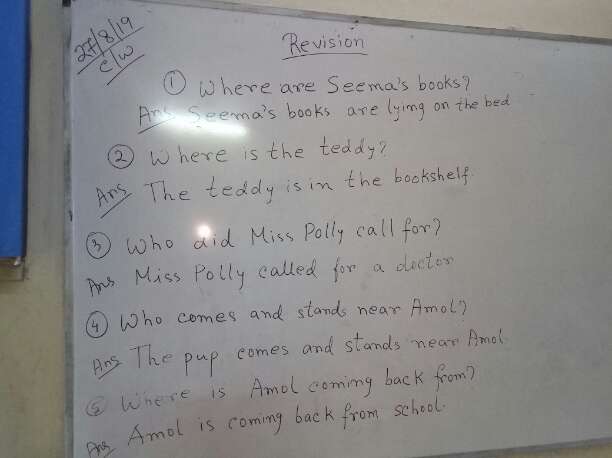 27/8/19
C/W
Revision
① Where are Seema's books?
Ans Seema's books are lying on the bed
② Where is the teddy?
Ans The teddy is in the bookshelf.
③ Who did Miss Polly call for?
Ans Miss Polly called for a doctor
④ Who comes and stands near Amol?
Ans The pup comes and stands near Amol.
⑤ Where is Amol coming back from?
Ans Amol is coming back from school.